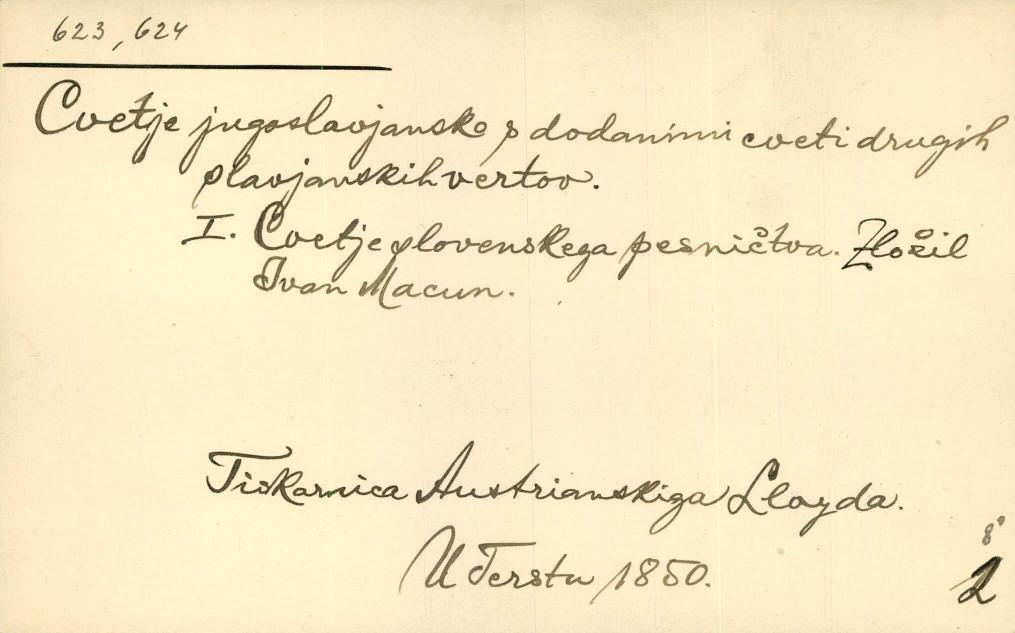 623, 624
Cvetje jugoslavjansko s dodanimi cveti drugih
slavjanskih vertov.
I. Cvetje slovenskega pesničtva. Zložil
Ivan Macun.
Tiskarnica Austrianskiga Lloyda.
U Terstu 1850.
8°
2